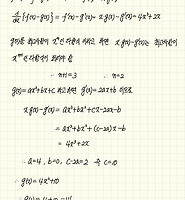 d/dx {f(x)-g(x)} = f'(x)-g'(x) = xg(x)-g'(x) = 4x³+2x
g(x)를 최고차항이 xⁿ인 다항식 이라고 하면 xg(x)-g'(x)는 최고차항이
xⁿ⁺¹인 다항식이 되어야 함
∴ n+1=3 ∴ n=2
g(x)=ax²+bx+c 라고하면 g'(x)=2ax+b 이므로
xg(x)-g'(x) = ax³+bx²+cx-2ax-b
= ax³+bx²+(c-2a)x-b
= 4x³+2x
∴ a=4, b=0, c-2a=2 즉 c=10
∴ g(x)=4x²+10